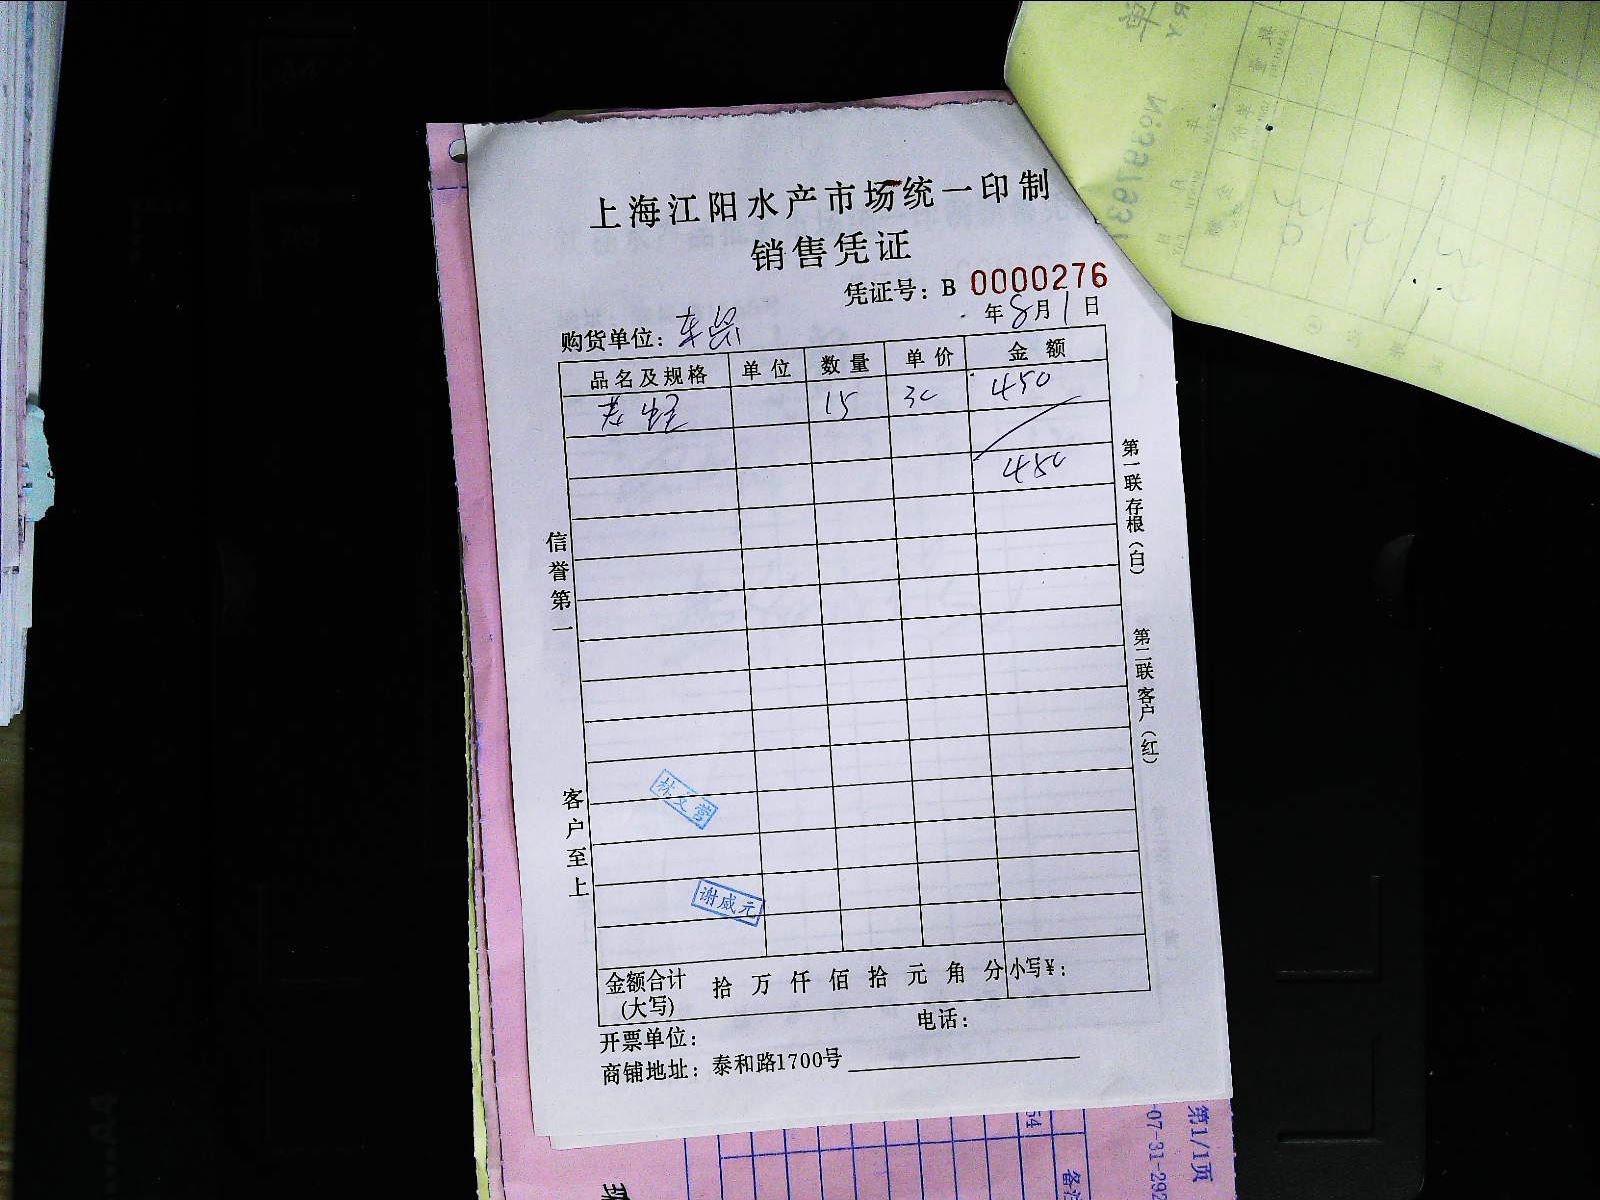 上海江阳水产市场统一印制
销售凭证
凭证号：B 0000276
年8月1日
购货单位：
品名及规格 单位 数量 单价 金额
15 30 450
450
信誉第一
客户至上
第一联存根（白）
第二联客户（红）
林文营
谢威元
金额合计（大写） 拾 万 仟 佰 拾 元 角 分 小写¥：
开票单位： 电话：
商铺地址：泰和路1700号
第1/1页